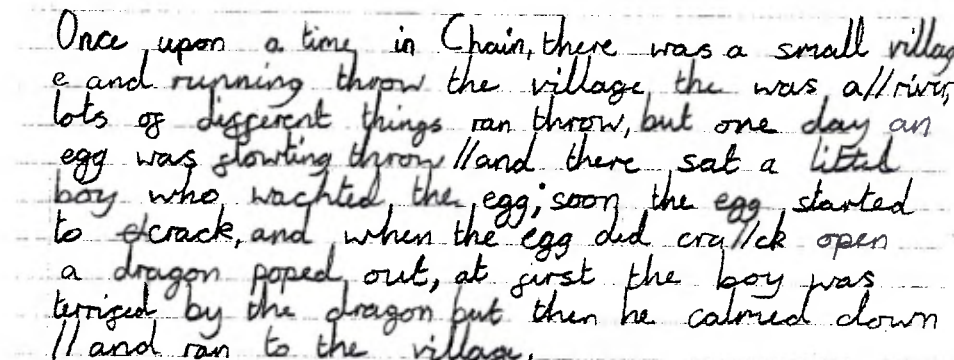 Once upon a time in Chain, there was a small villag
e and running throw the village the was a//river,
lots of different things ran throw, but one day an
egg was flowting throw //and there sat a littel
boy who wachted the egg; soon the egg started
to crack, and when the egg did cra//ck open
a dragon poped out, at first the boy was
terrifed by the dragon but then he calmed down
//and ran to the village.